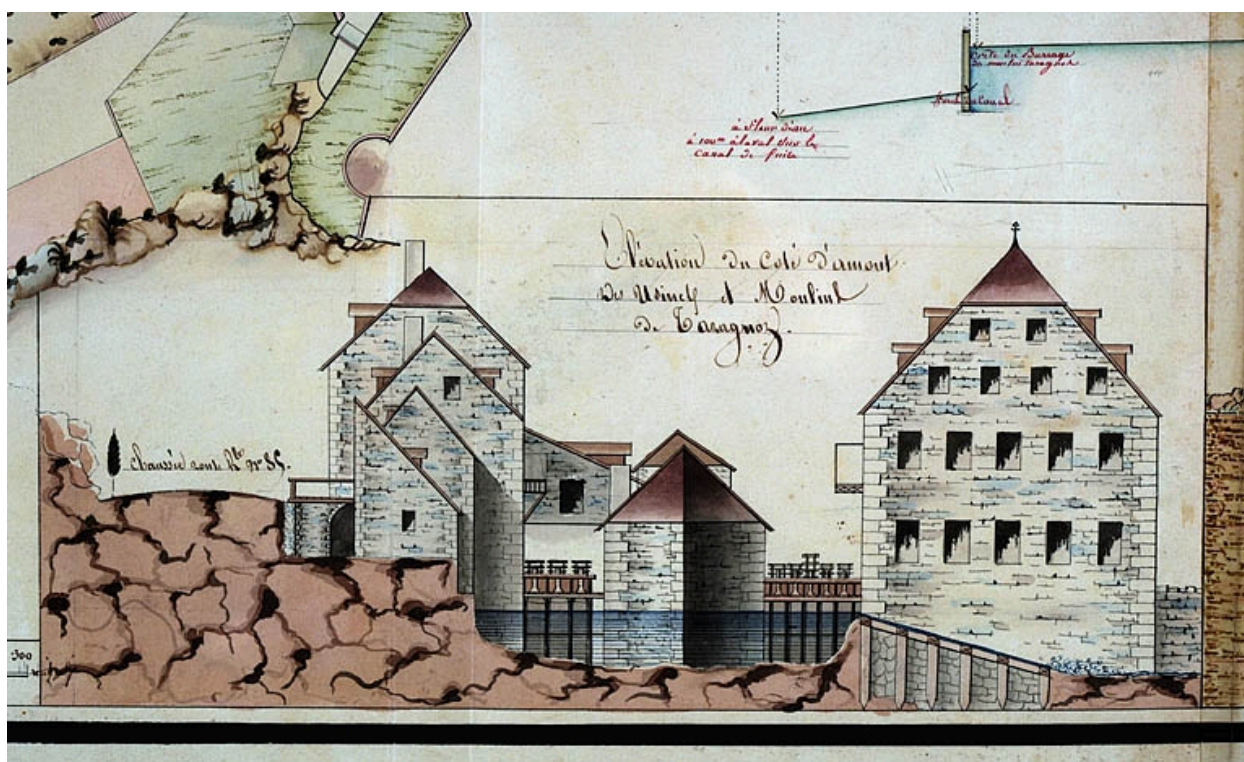 Crête du Barrage
du moulin Taragnoz
fond du Canal
à fleur d'eau
à 100m à laval sur le
canal de fuite
Elévation du Coté D'amont
Des Usines et Moulins
de Taragnoz.
Chaussée route
300